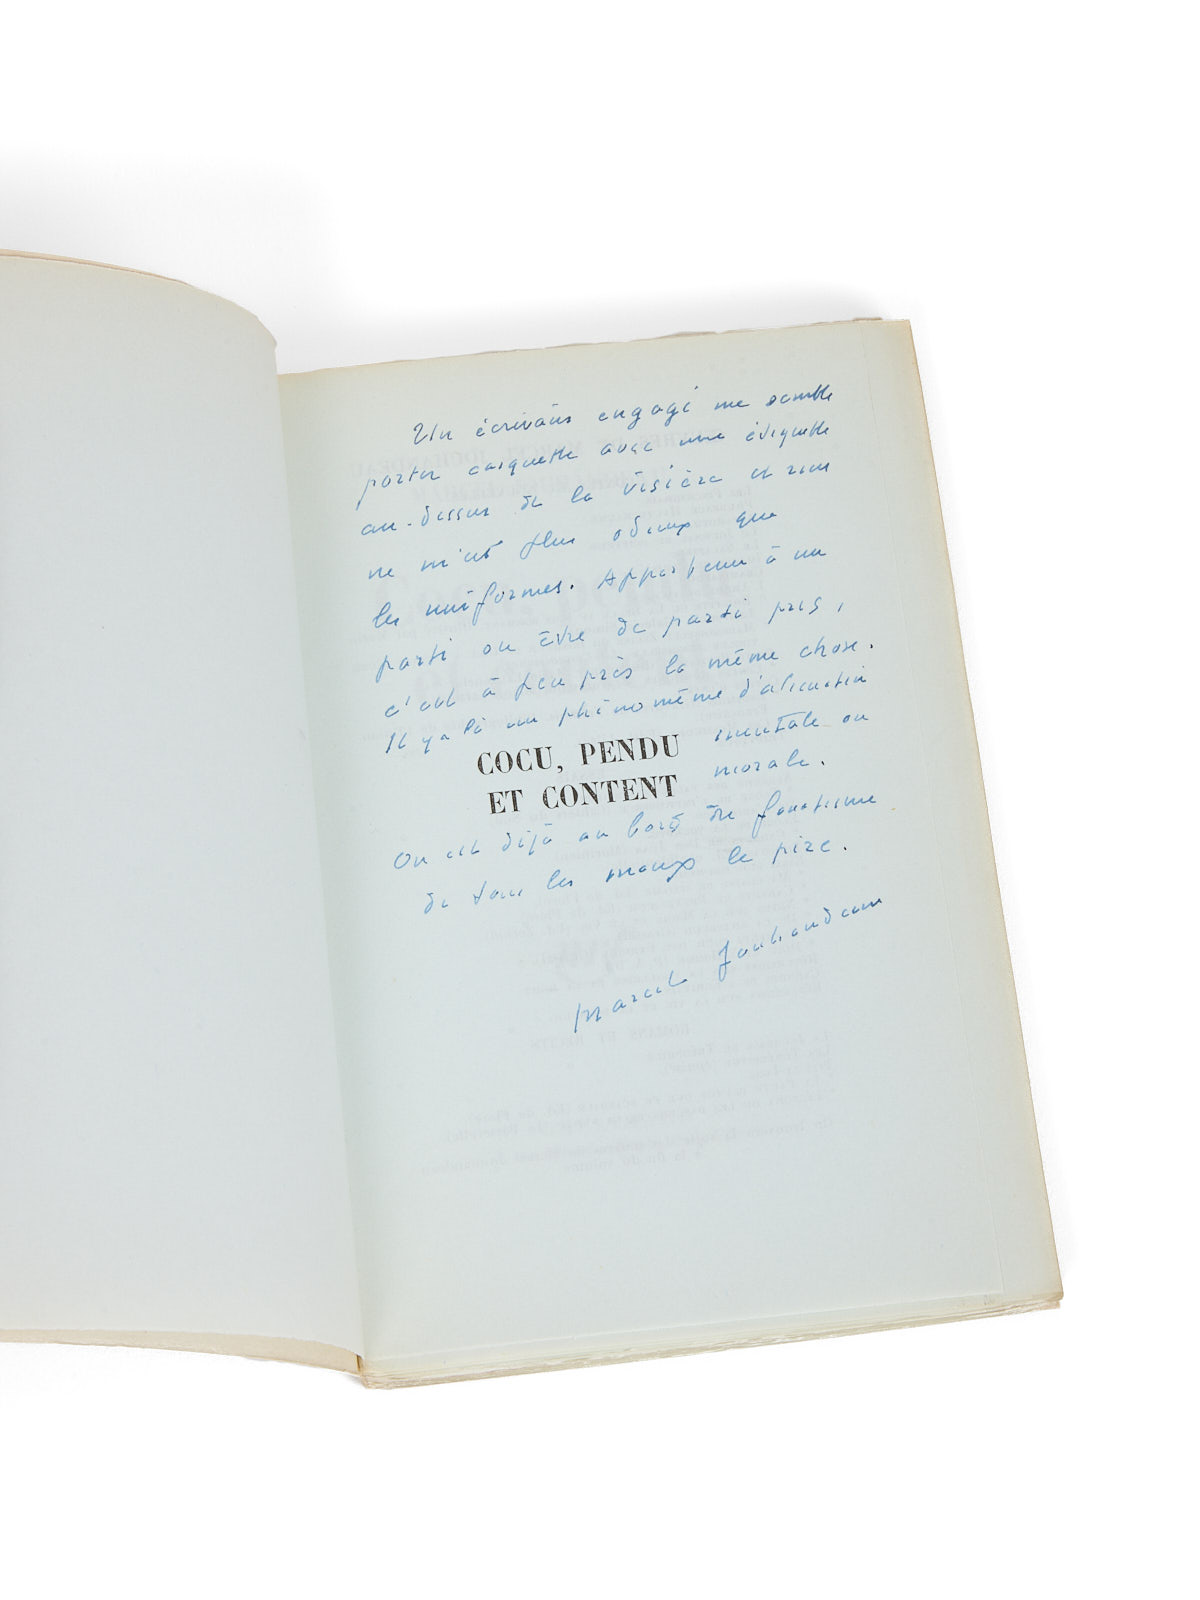 Un écrivain engagé me semble
porter casquette avec une étiquette
au-dessus de la visière et rien
ne m'est plus odieux que
les uniformes. Appartenir à un
parti ou être de parti pris,
c'est à peu près la même chose.
Il y a là un phénomème d'aliénation
mentale ou
morale.
COCU, PENDU
ET CONTENT
On est déjà au bord du fanatisme
de tous les maux le pire.
Marcel Jouhandeau